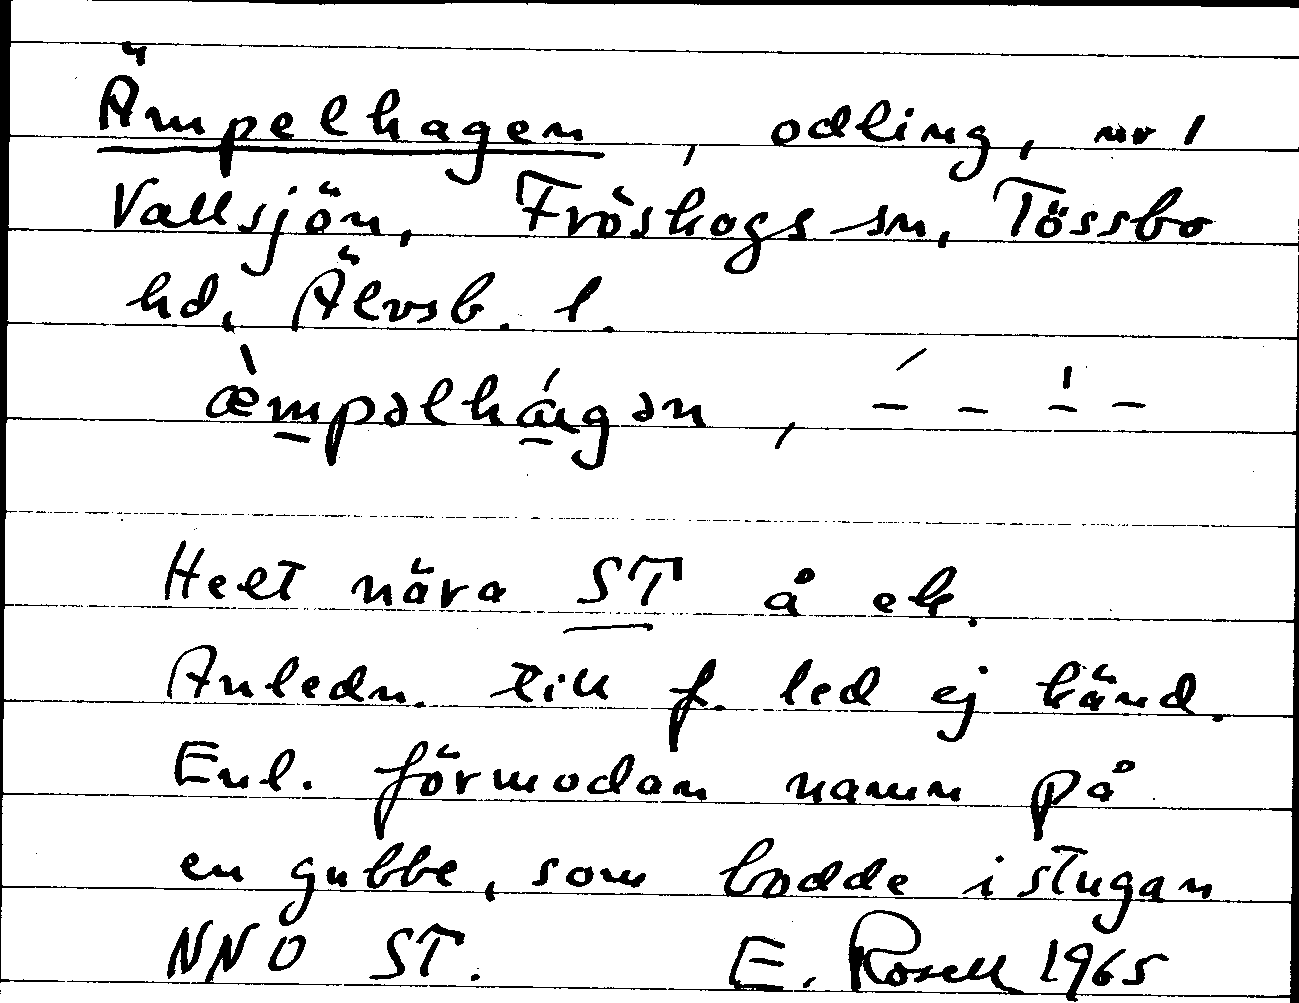 Ämpelhagen, odling, nr 1
Vallsjön, Fröskogs sn, Tössbo
hd, Älvsb. l.
æ̀mpəlhá̱gən, – – – –
Helt nära ST å ek.
Anledn. till f. led ej känd.
Enl. förmodan namn på
en gubbe, som bodde i stugan
NNO ST. E. Rosell 1965